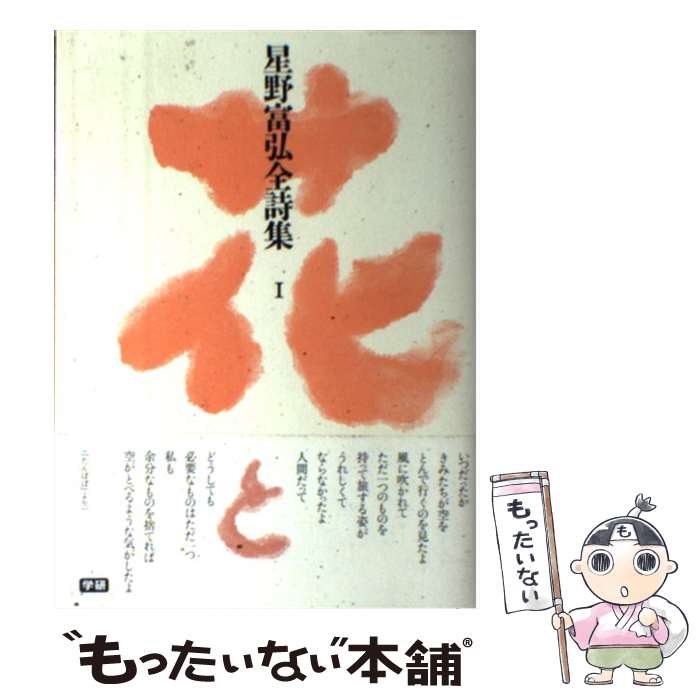 星野富弘全詩集
I
花
と
いつだったか
きみたちが空を
とんで行くのを見たよ
風に吹かれて
ただ一つのものを
持って旅する姿が
うれしくて
ならなかったよ
人間だって
どうしても
必要なものはただ一つ
私も
余分なものを捨てれば
空がとべるような気がしたよ
（「たんぽぽ」より）
学研
もったいない
も
"もったいない"本舗®